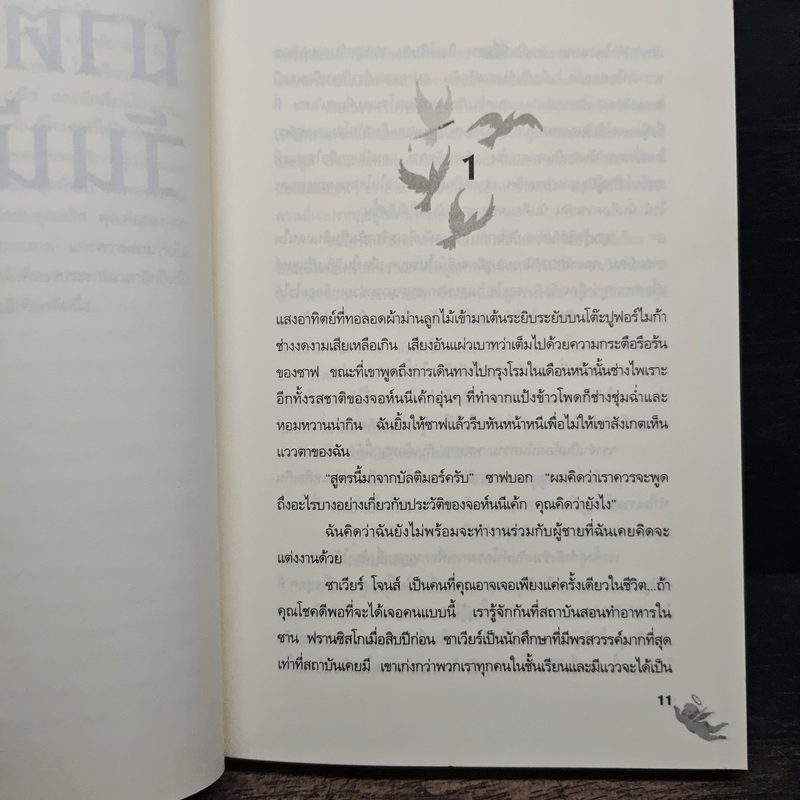 1
แสงอาทิตย์ที่ทอลอดผ้าม่านลูกไม้เข้ามาเต้นระยิบระยับบนโต๊ะปูฟอร์ไมก้า
ช่างงดงามเสียเหลือเกิน เสียงอันแผ่วเบาทว่าเต็มไปด้วยความกระตือรือร้น
ของซาฟ ขณะที่เขาพูดถึงการเดินทางไปกรุงโรมในเดือนหน้านั้นช่างไพเราะ
อีกทั้งรสชาติของจอห์นนีเค้กอุ่นๆ ที่ทำจากแป้งข้าวโพดก็ช่างชุ่มฉ่ำและ
หอมหวานน่ากิน ฉันยิ้มให้ซาฟแล้วรีบหันหน้าหนีเพื่อไม่ให้เขาสังเกตเห็น
แววตาของฉัน
"สูตรนี้มาจากบัลติมอร์ครับ" ซาฟบอก "ผมคิดว่าเราควรจะพูด
ถึงอะไรบางอย่างเกี่ยวกับประวัติของจอห์นนีเค้ก คุณคิดว่ายังไง"
ฉันคิดว่าฉันยังไม่พร้อมจะทำงานร่วมกับผู้ชายที่ฉันเคยคิดจะ
แต่งงานด้วย
ซาเวียร์ โจนส์ เป็นคนที่คุณอาจเจอเพียงแค่ครั้งเดียวในชีวิต...ถ้า
คุณโชคดีพอที่จะได้เจอคนแบบนี้ เรารู้จักกันที่สถาบันสอนทำอาหารใน
ซาน ฟรานซิสโกเมื่อสิบปีก่อน ซาเวียร์เป็นนักศึกษาที่มีพรสวรรค์มากที่สุด
เท่าที่สถาบันเคยมี เขาเก่งกว่าพวกเราทุกคนในชั้นเรียนและมีแววจะได้เป็น
11